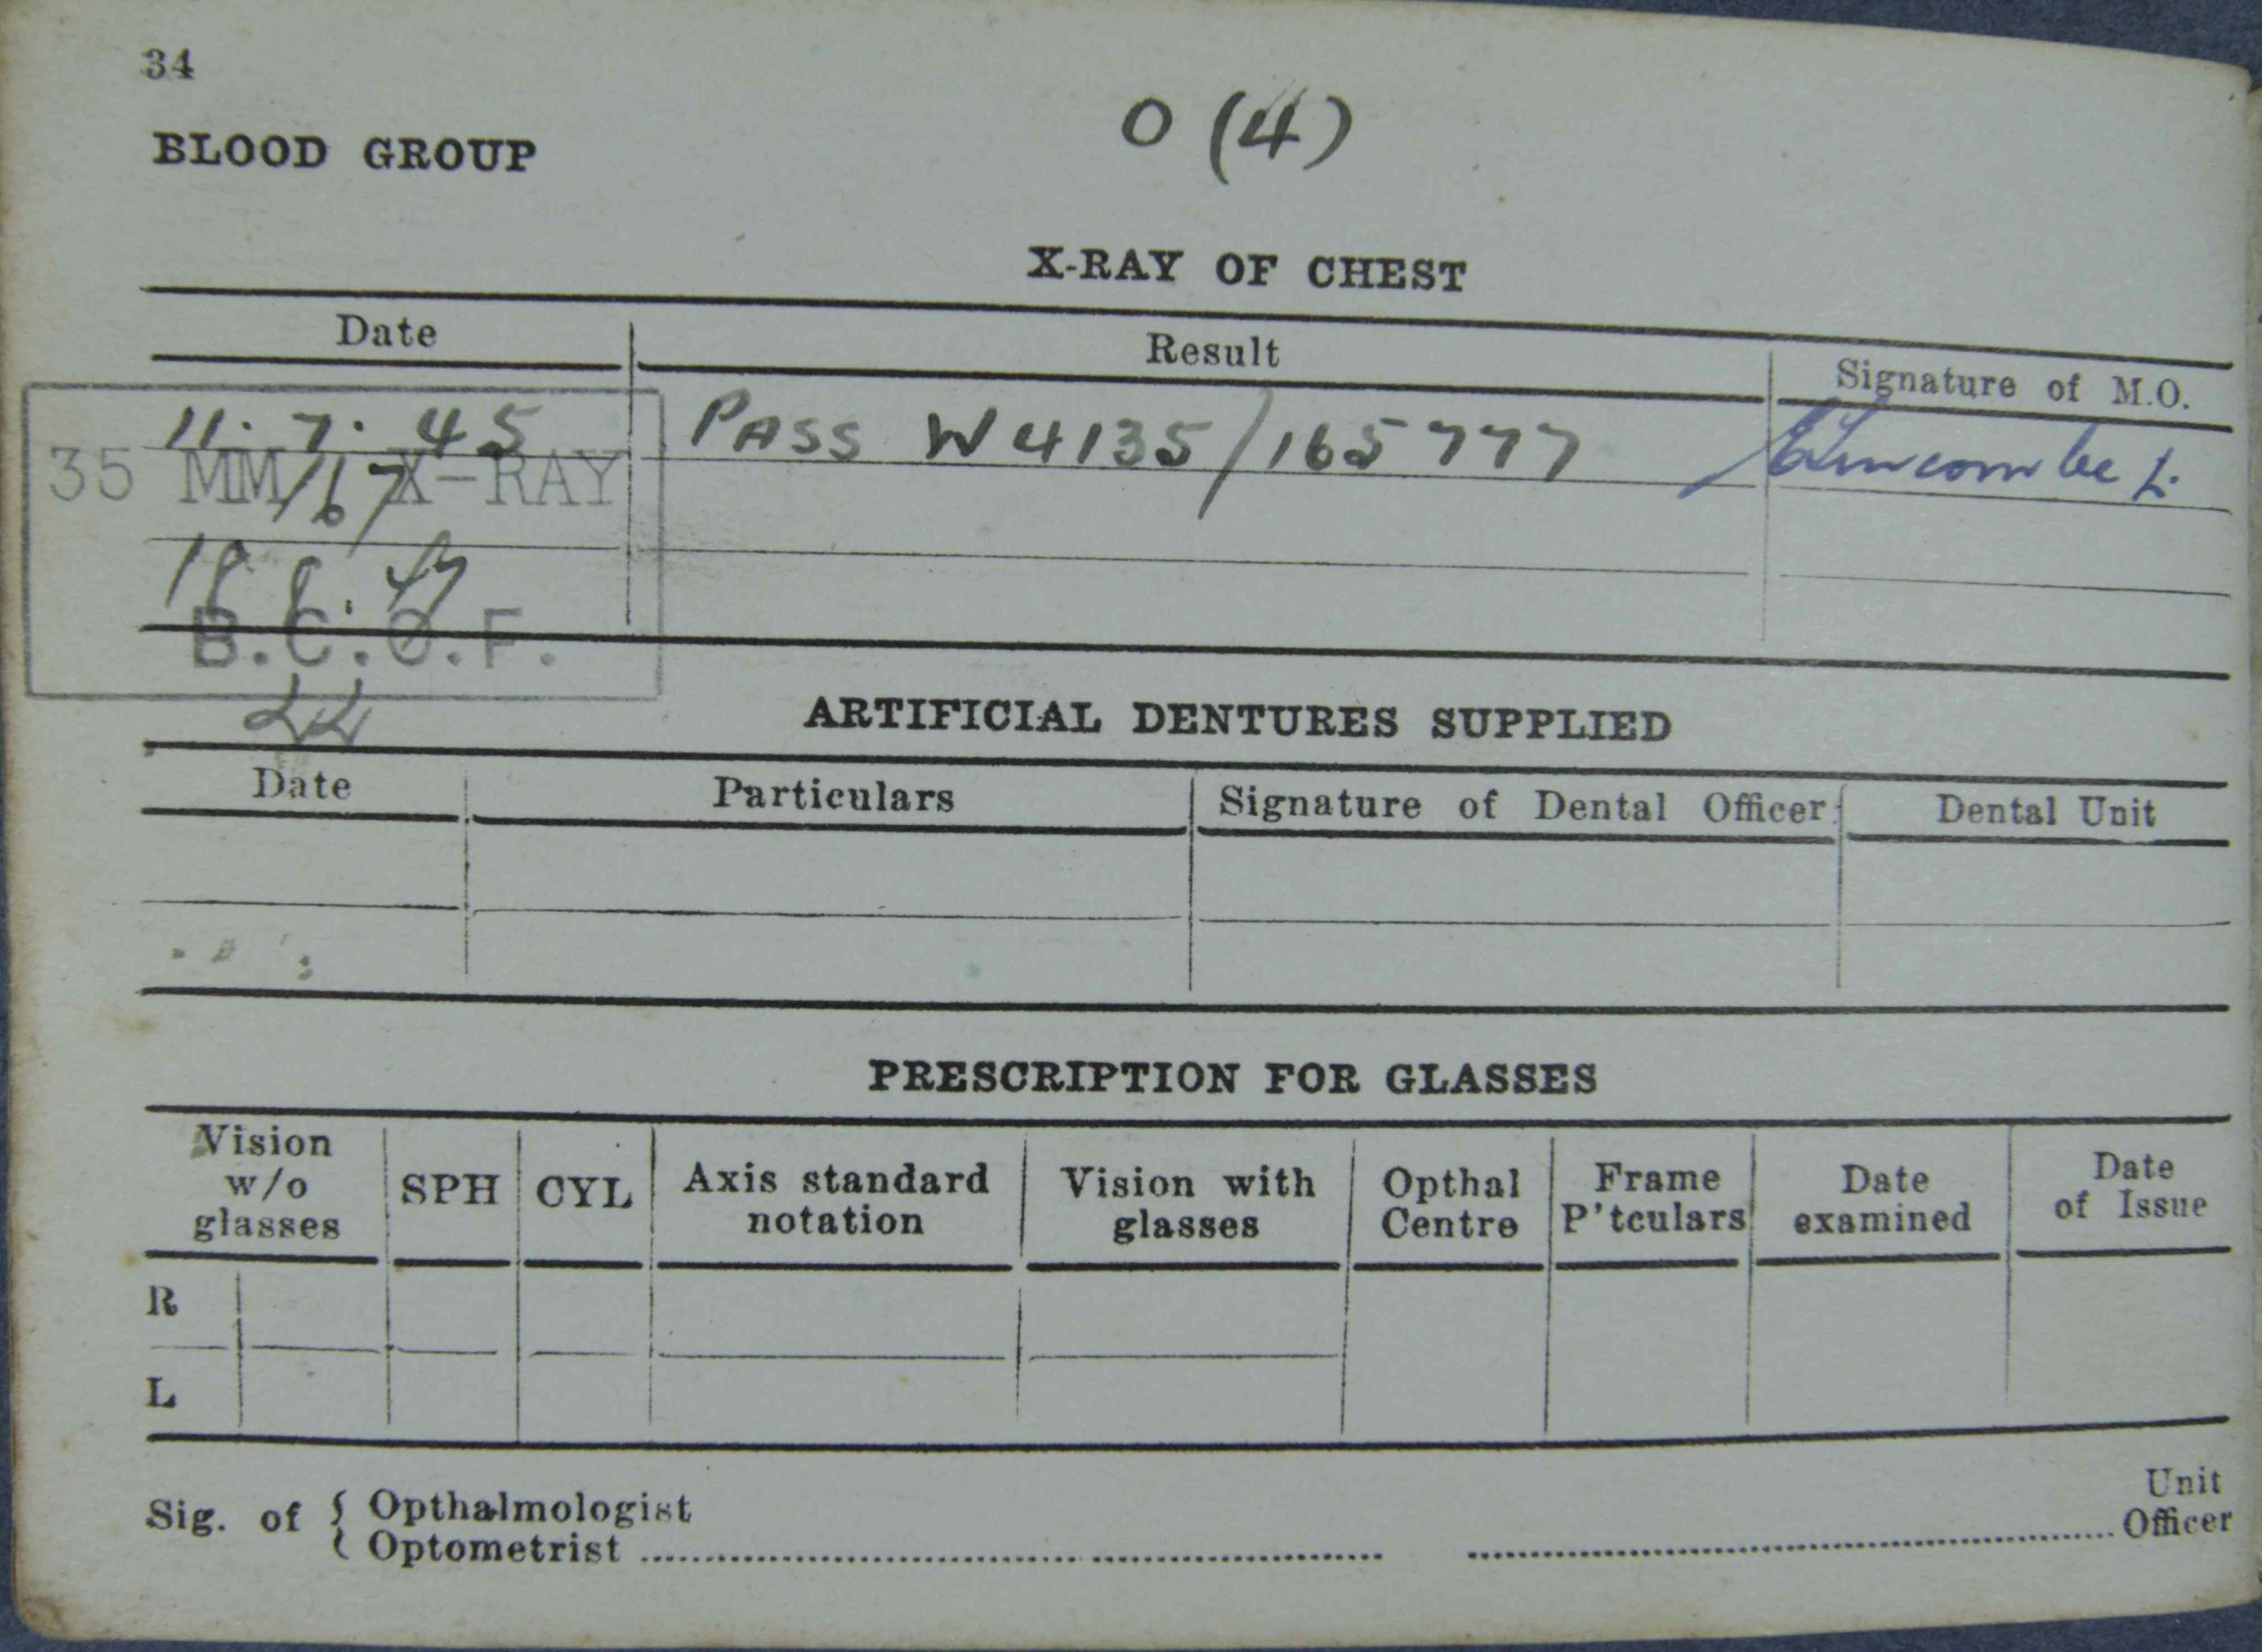 34
BLOOD GROUP O (4)
X-RAY OF CHEST
Date Result Signature of M.O.
11. 7. 45 PASS W4135/165777
35 MM X-RAY
B.C.O.F.
ARTIFICIAL DENTURES SUPPLIED
Date Particulars Signature of Dental Officer Dental Unit
PRESCRIPTION FOR GLASSES
Vision w/o glasses SPH CYL Axis standard notation Vision with glasses Opthal Centre Frame P'tculars Date examined Date of Issue
R
L
Sig. of { Opthalmologist
Optometrist
Unit
Officer